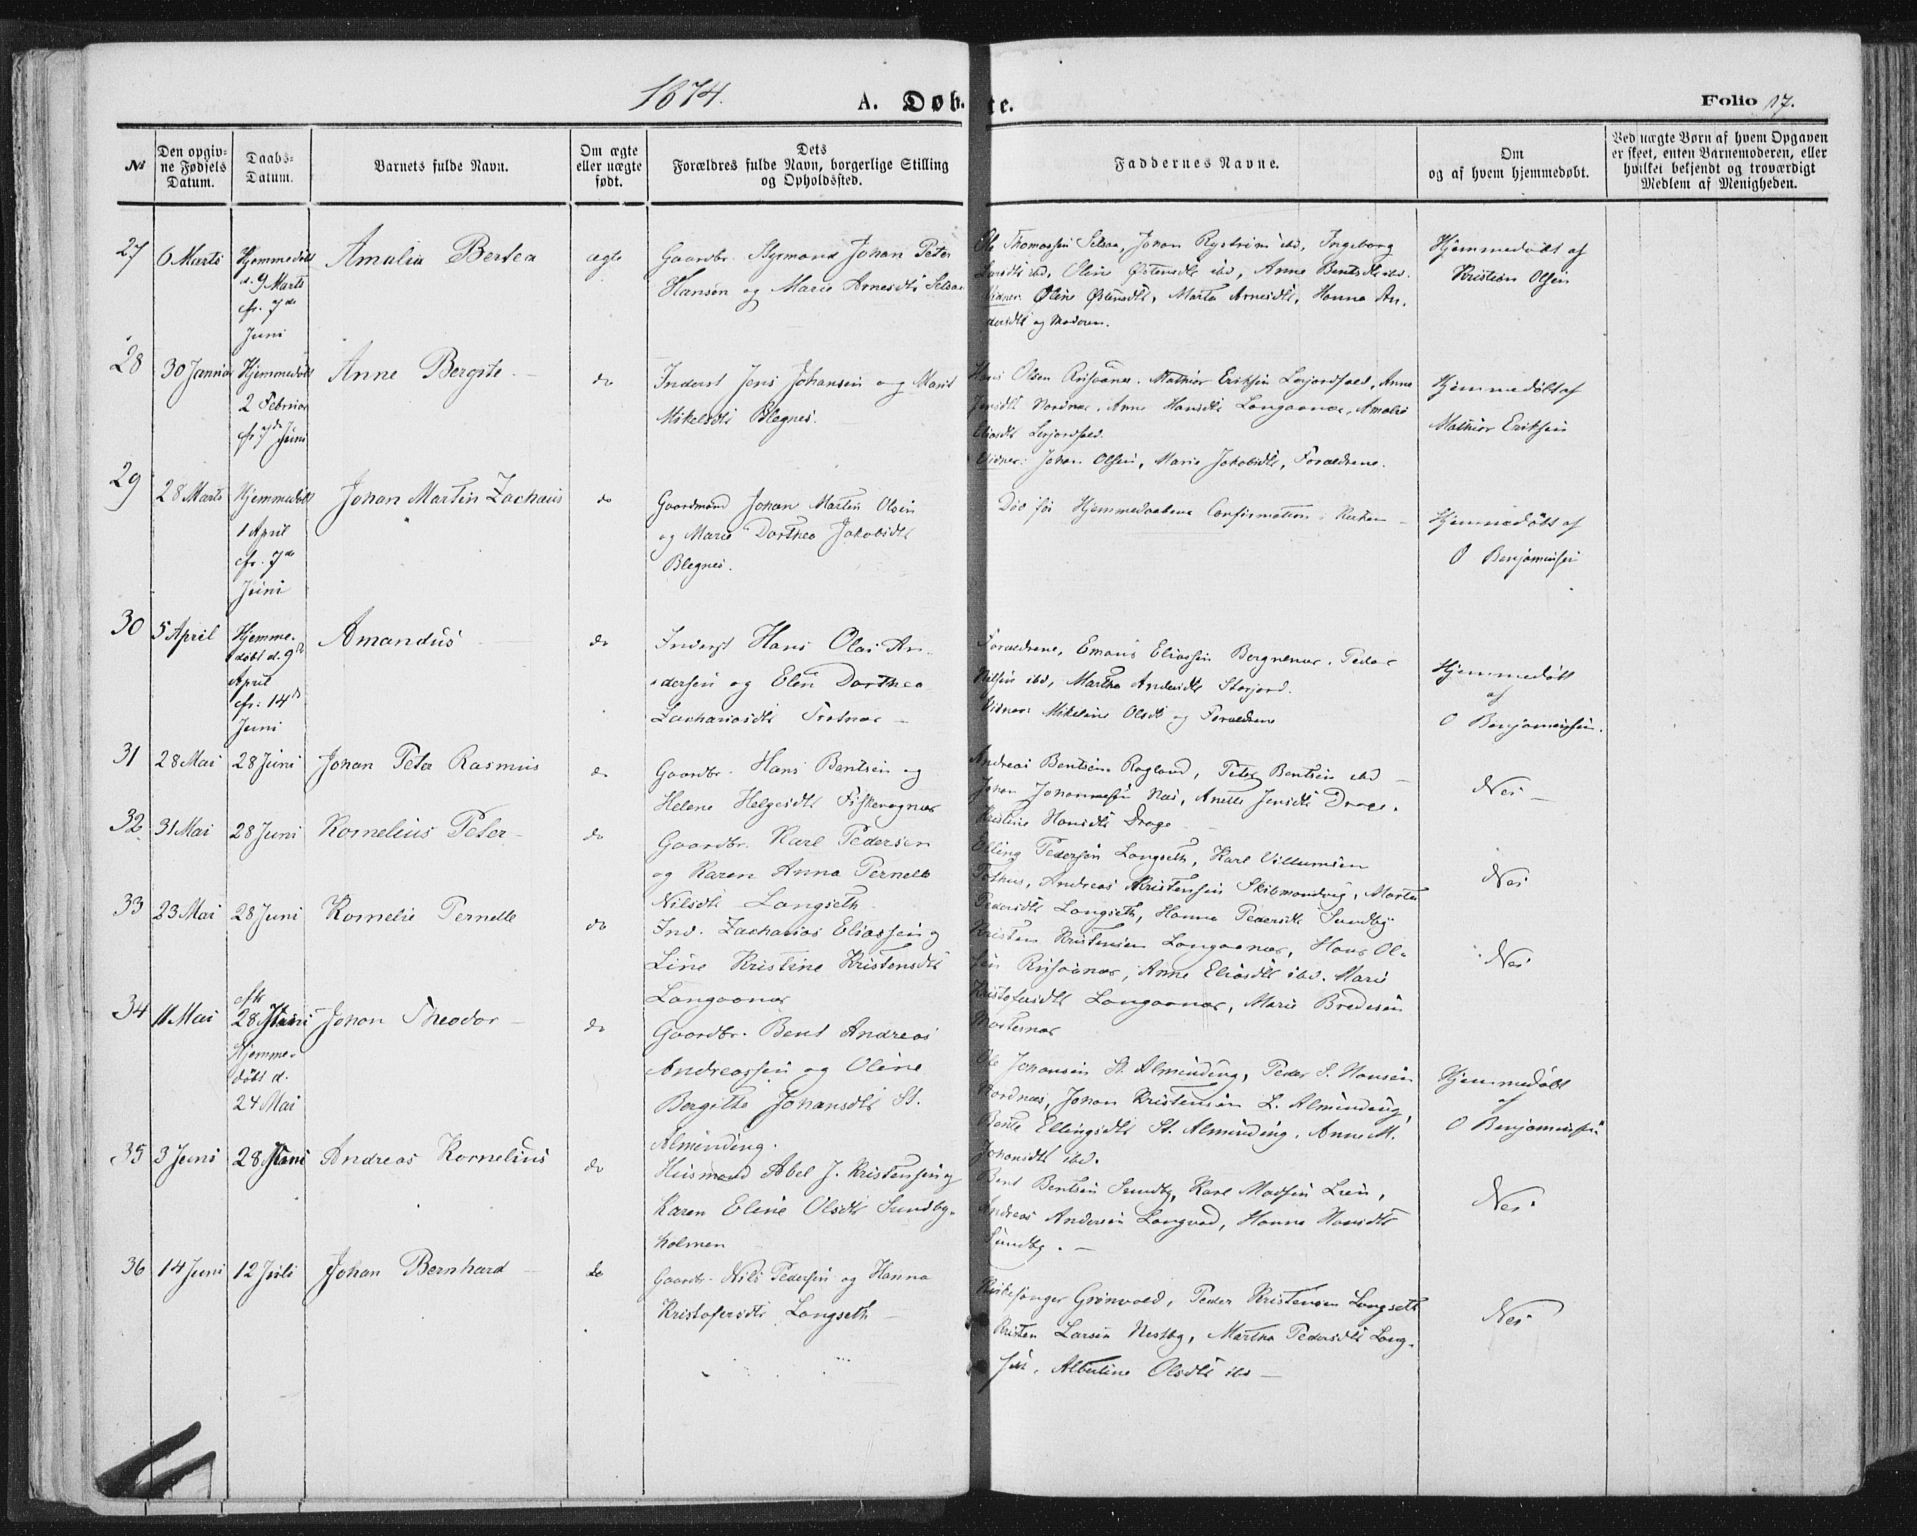 1874.
A. Døbte.
Folio 17.
No
Den opgivne Fødsels Datum.
Daabs-Datum.
Barnets fulde Navn.
Om ægte eller uægte født.
Dets Forældres fulde Navn, borgerlige Stilling og Opholdssted.
Faddernes Navne.
Om og af hvem hjemmedøbt.
Ved uægte Børn af hvem Opgaven er skeet, enten Barnemoderen, eller hvilket bekjendt og troværdigt Medlem af Menigheden.
27
6 Marts
Hjemmedøbt
d. 9 Marts
cfr. 7de
Juni
Amalia Bertea
ægte
Gaardbr. Styrmand Johan Peter
Hansen og Marie Arnesdtr Selsaa
Ole Thomassen Selsaa, Johan Rystrøm ibd, Ingeborg
Larsdtr ibd, Oline Østensdtr ibd, Anne Bentsdtr ibd.
Vidner: Oline Østensdtr, Marta Arnesdtr, Hanna An-
dersdtr og Moderen.
Hjemmedøbt af
Kristian Olsen
28
30 Januar
Hjemmedøbt
2 Februar
cfr. 7de Juni
Anne Bergite
do
Inderst Jens Johansen og Marit
Mikelsdtr Blegnes.
Hans Olsen Risaanes. Mathias Eriksen Lerjordfald, Anne
Jensdtr Nordnæs, Anne Hansdtr Langaanæs, Amalie
Eliasdtr Lerjordfald.
Vidner: Johan Olsen, Marie Jakobsdtr, Forældrene.
Hjemmedøbt af
Mathias Eriksen
29
28 Marts
Hjemmedøbt
1 April
cfr. 7de
Juni
Johan Martin Zachæus
do
Gaardmand Johan Martin Olsen
og Marie Dorthea Jakobsdtr
Blegnes.
Død før Hjemmedaabens Confirmation i Kirken
Hjemmedøbt af
O Benjaminsen
30
5 April
Hjemme-
døbt d. 9de
April
cfr. 14de
Juni
Amandus
do
Inderst Hans Olai An-
dersen og Elen Dorthea
Zachariasdtr
Forældrene, Emans Eliassen Bergnenæs, Peder
Nilsen ibd, Martha Andersdtr Storjord.
Vidner: Mikeline Olsdtr og Forældrene
Hjemmedøbt
af
O Benjaminsen.
31
28 Mai
28 Juni
Johan Peter Rasmus
do
Gaardbr. Hans Bentsen og
Helene Helgesdtr Fiskevognæs
Andreas Bentsen Rogland, Peter Bentsen ibd
Johan Johannesen Næs, Anette Jensdtr Drage.
Kristine Hansdtr Drage
Nei
32
31 Mai
28 Juni
Kornelius Peter
do
Gaardbr. Karl Pedersen
og Karen Anna Pernelle
Nilsdtr Langseth
Elling Pedersen Langseth, Karl Villumsen
Pothus, Andreas Kristensen Skibmandvig, Marta
Pedersdtr Langseth, Hanna Pedersdtr Sundby
Nei
33
23 Mai
28 Juni
Kornelie Pernelle
do
Ind. Zacharias Eliassen og
Line Kristine Kristensdtr
Langaanæs
Kristen Kristensen Langaanæs, Hans Ol-
sen Risaanæs, Anne Eliasdtr ibd. Marie
Kristofersdtr Langaanæs, Marie Bredesen
Mosternæs
Nei
34
11 Mai
cfr
28 Juni
Hjemme-
døbt d.
24 Mai
Johan Theodor
do
Gaardbr. Bent Andreas
Andreassen og Oline
Bergitte Johansdtr St.
Alminding.
Ole Johansen St. Alminding, Peder S. Hansen
Nordnæs, Johan Kristensen L. Alminding,
Bente Ellingsdtr St. Alminding, Anne M.
Johansdtr ibd.
Hjemmedøbt
af
O Benjaminsen
35
3 Juni
28 Juni
Andreas Kornelius
do
Husmand Abel J. Kristensen og
Karen Eline Olsdtr Sundby-
holmen
Bent Bentsen Sundby, Karl Madsen Lien,
Andreas Andersen Langvad, Hanna Hansdtr
Sundby.
Nei
36
14 Juni
12 Juli
Johan Bernhard
do
Gaardbr. Nils Pedersen og Hanna
Kristofersdtr Langseth
Kirkesanger Grønvold, Peder Kristensen Langseth
Kristen Larsen Nestby, Martha Pedersdtr Lang-
set, Albertine Olsdtr ibd
Nei